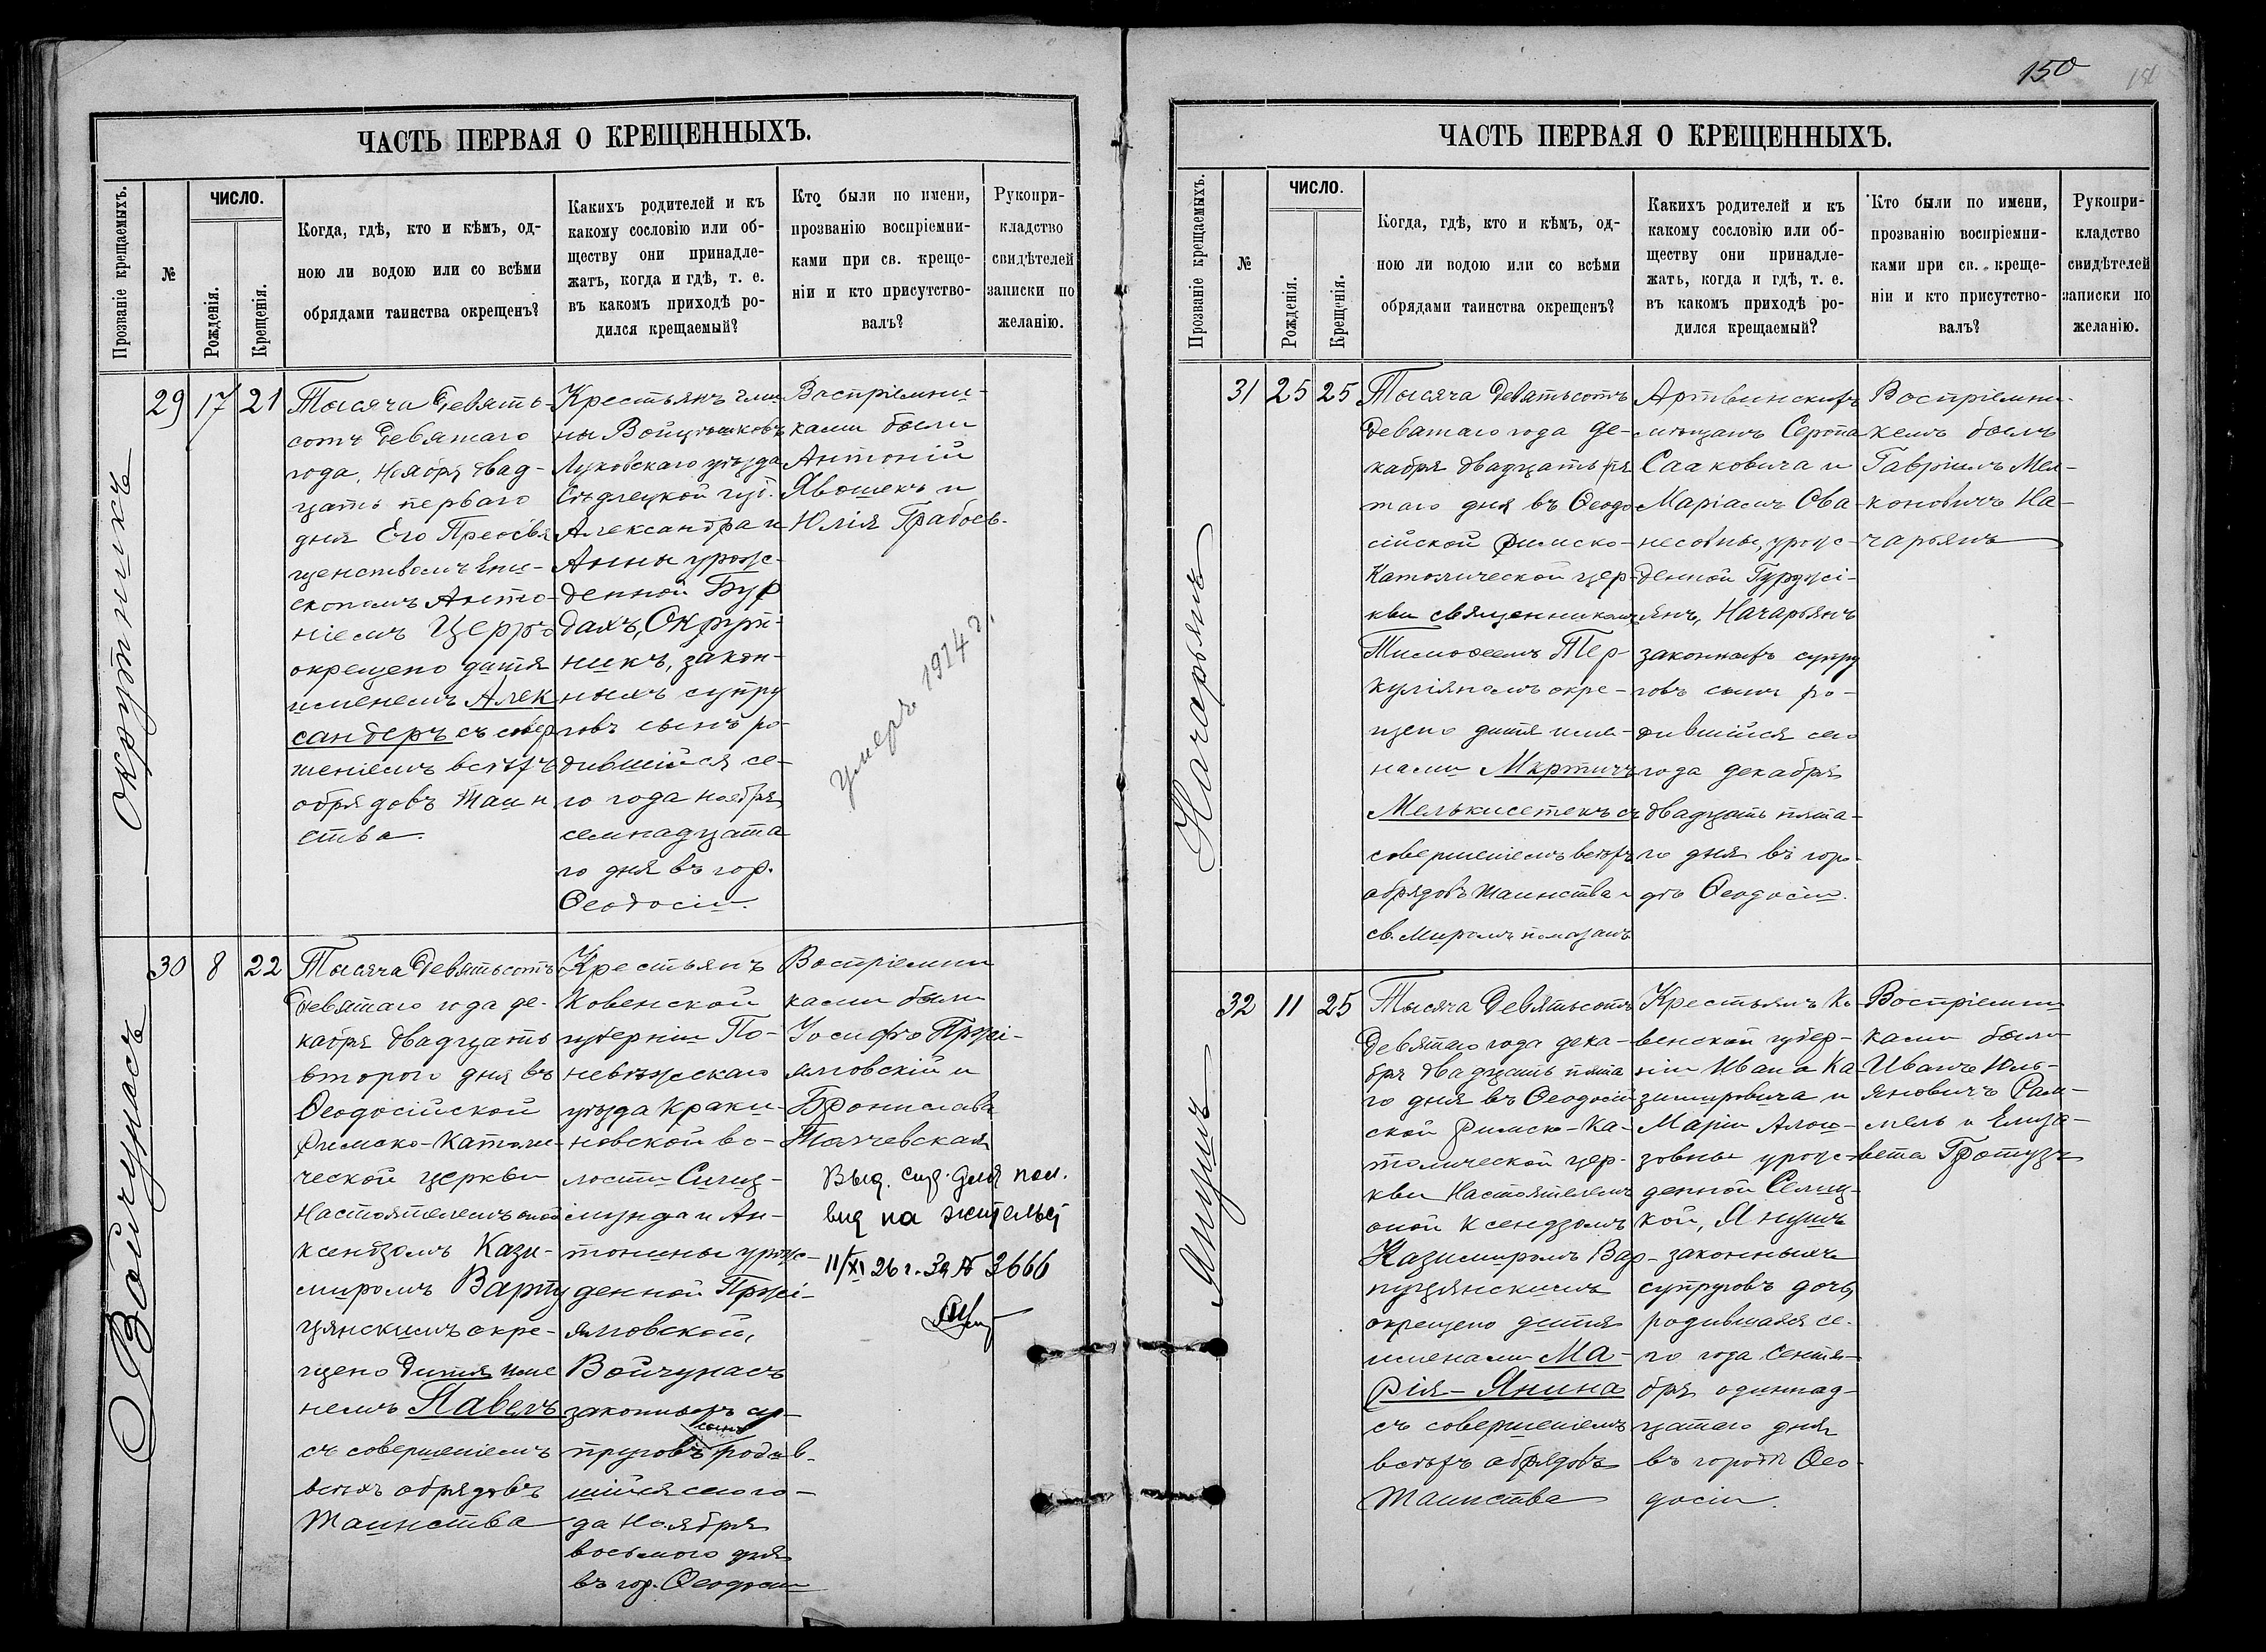 150
ЧАСТЬ ПЕРВАЯ О КРЕЩЕННЫХЪ.
Прозваніе крещаемыхъ.
№
ЧИСЛО.
Рожденія.
Крещенія.
Когда, гдѣ, кто и кѣмъ, од-
ною ли водою или со всѣми
обрядами таинства окрещенъ?
Какихъ родителей и къ
какому сословію или об-
ществу они принадле-
жатъ, когда и гдѣ, т. е.
въ какомъ приходѣ ро-
дился крещаемый?
Кто были по имени,
прозванію воспріемни-
ками при св. креще-
ніи и кто присутство-
валъ?
Рукопри-
кладство
свидѣтелей
записки по
желанію.
Окрутникъ
29 17 21
Тысяча девять-
сотъ девятаго
года, ноября двад-
цать перваго
дня Его Преосвя
щенствомъ Епи-
скопомъ Анто-
ніемъ Церръ
окрещено дитя
именемъ Алек
сандеръ съ совер
шеніемъ всѣхъ
обрядовъ Таин
ства.
Крестьянъ гми
ны Войцѣшковъ
Луковскаго уѣзда
Сѣдлецкой губ.
Александра и
Анны урож-
денной Бур
дахъ, Окрут-
никъ, закон-
ныхъ супру
говъ сынъ ро-
дившійся се-
го года ноября
семнадцата
го дня въ гор.
Ѳеодосіи.
Воспріемни-
ками были
Антоній
Явошекъ и
Юлія Грабоев.
умеръ 1914 г.
Войчунасъ
30 8 22
Тысяча девятьсотъ
девятаго года де-
кабря двадцать
второго дня въ
Ѳеодосійской
Римско-Католи-
ческой церкви
Настоятелемъ оной
ксендзомъ Кази-
миромъ Варпу
цянскимъ окре-
щено дитя име
немъ Павелъ
съ совершеніемъ
всѣхъ обрядовъ
Таинства
Крестьянъ
Ковенской
губерніи По-
невѣжскаго
уѣзда Краки-
новской во-
лости Сигиз-
мунда и Ан-
тонины урож-
денной Пржі-
ялговской,
Войчунасъ
законныхъ су-
пруговъ сынъ родив-
шійся сего го-
да Ноября
восьмого дня
въ гор. Ѳеодосіи
Воспріемни
ками были
Іосифъ Пржі-
ялговскій и
Бронислава
Толчевская
Выд. для пол.
вид на жительст
11/XI 26 г. за № 3666
ЧАСТЬ ПЕРВАЯ О КРЕЩЕННЫХЪ.
Прозваніе крещаемыхъ.
№
ЧИСЛО.
Рожденія.
Крещенія.
Когда, гдѣ, кто и кѣмъ, од-
ною ли водою или со всѣми
обрядами таинства окрещенъ?
Какихъ родителей и къ
какому сословію или об-
ществу они принадле-
жатъ, когда и гдѣ, т. е.
въ какомъ приходѣ ро-
дился крещаемый?
Кто были по имени,
прозванію воспріемни-
ками при св. креще-
ніи и кто присутство-
валъ?
Рукопри-
кладство
свидѣтелей
записки по
желанію.
Начарьянъ
31 25 25
Тысяча девятьсотъ
девятаго года де-
кабря двадцать пя
таго дня въ Ѳеодо
сійской Римско-
Католической цер-
кви священникомъ
Тимоѳеемъ Тер-
куліяномъ окре-
щено дитя име-
нами Мкртичъ
Мелькисетекъ съ
совершеніемъ всѣхъ
обрядовъ таинства и
св. Миромъ помазанъ
Артвинскихъ
мѣщанъ Серопа
Сааковича и
Маріамъ Ова-
несовны, урож-
денной Гурджі-
янъ, Начарьянъ
законныхъ супру
говъ сынъ ро-
дившійся сего
года декабря
двадцать пята-
го дня въ горо-
дѣ Ѳеодосіи.
Воспріемни-
комъ былъ
Гавріилъ Мел-
коновичъ На-
чарьянъ
Янушъ
32 11 25
Тысяча девятьсотъ
девятаго года дека-
бря двадцать пята
го дня въ Ѳеодосій
ской Римско-Ка-
толической цер-
кви Настоятелемъ
оной ксендзомъ
Казимиромъ Вар-
пуцянскимъ
окрещено дитя
именами Ма-
рія-Янина
съ совершеніемъ
всѣхъ обрядовъ
Таинства
Крестьянъ Ко-
венской губер-
ніи Ивана Ка
зимировича и
Маріи Алои-
зовны урож-
денной Селиц-
кой, Янушъ
законныхъ
супруговъ дочь,
родившаяся се-
го года Сентя-
бря одиннад-
цатаго дня
въ городѣ Ѳео-
досіи.
Воспріемни
ками были
Иванъ Юль-
яновичъ Рам-
мель и Елиза-
вета Гротузъ